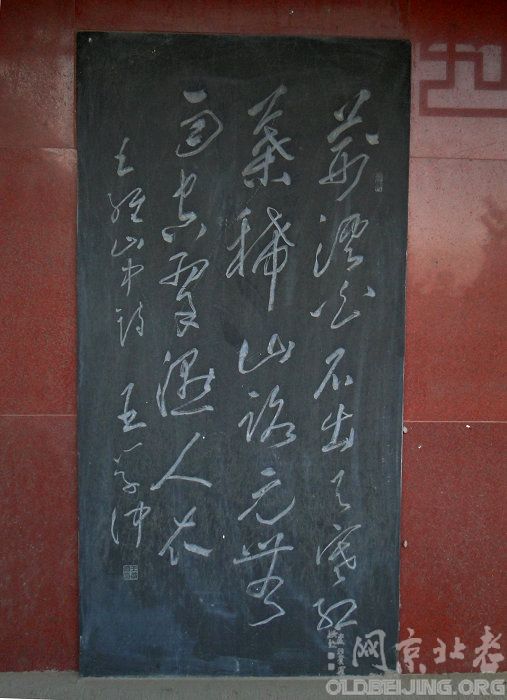 荆溪白石出天寒紅
葉稀山路元無
雨空翠濕人衣
王維山中詩 王學仲
老北京网
OLDBEIJING.ORG